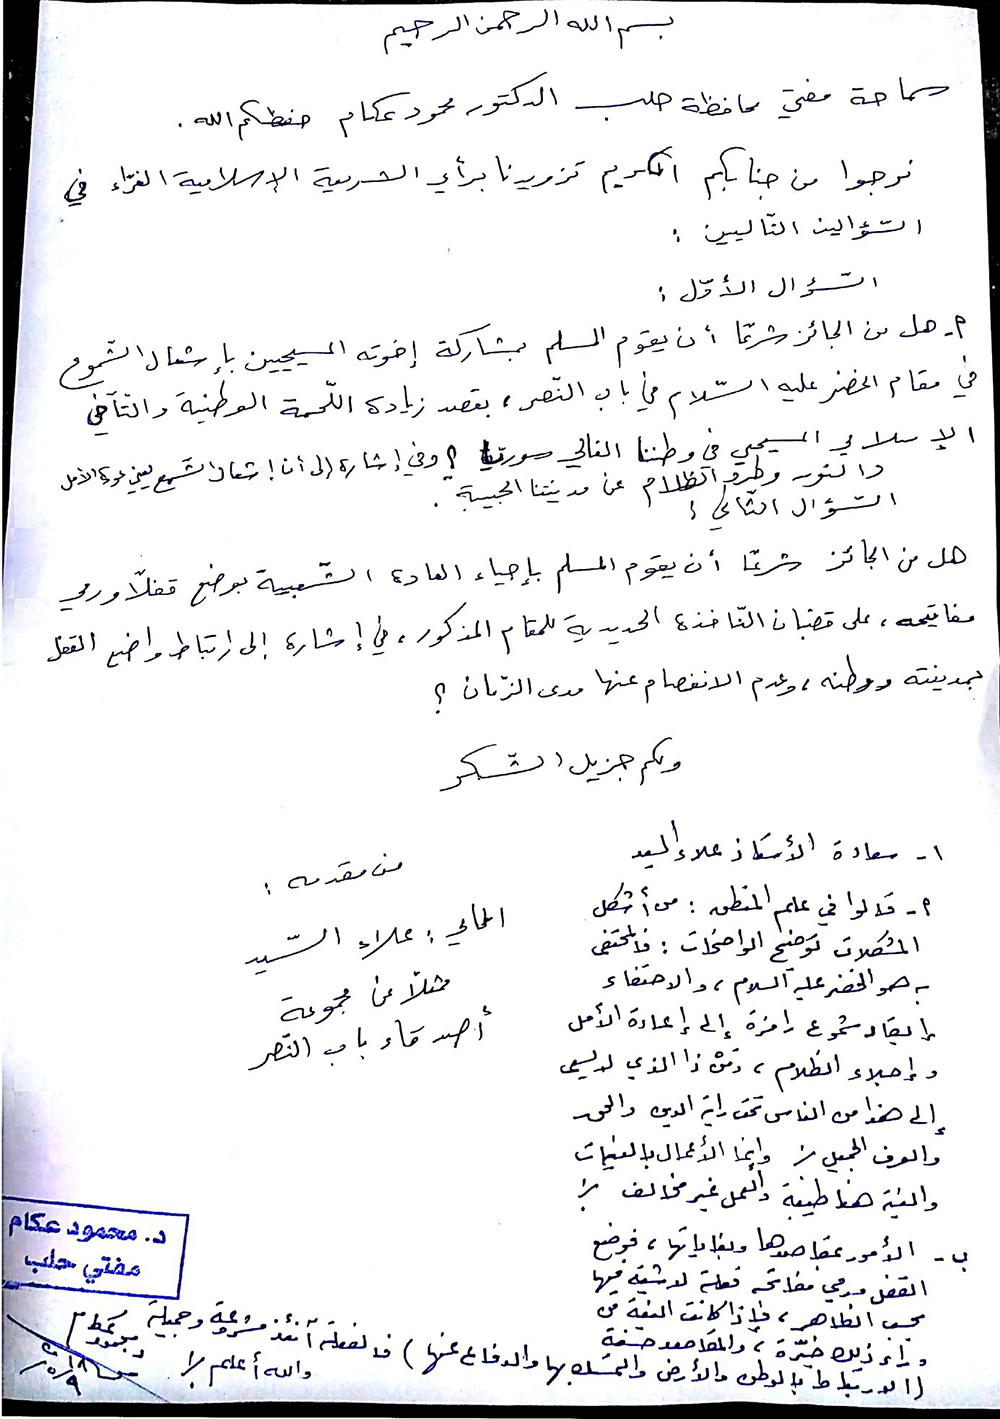 بسم الله الرحمن الرحيم
سماحة مفتي محافظة حلب الدكتور محمود عكام حفظكم الله .
نرجوا من جنابكم الكريم تزويدنا برأي الشريعة الإسلامية الغرّاء في
السّؤالين التّاليين :
السّؤال الأوّل :
أ- هل من الجائز شرعًا أن يقوم المسلم بمشاركة إخوته المسيحيين بإشعال الشّموع
في مقام الخضر عليه السّلام في باب النّصر ، بقصد زيادة اللّحمة الوطنية والتّآخي
الإسلامي المسيحي في وطننا الغالي سوريّا ؟ وفي إشارة إلى أن إشعال الشّمع يعني عودة الأمل
والنور وطرد الظلام عن مدينتنا الحبيبة .
السّؤال الثّاني :
هل من الجائز شرعًا أن يقوم المسلم بإحياء العادة الشّعبية بوضع قفلًا ورمي
مفاتيحه ، على قضبان النّافذة الحديدية للمقام المذكور ، في إشارة إلى ارتباط واضع القفل
بمدينته ووطنه ، وعدم الانفصام عنها مدى الزّمان ؟
ولكم جزيل الشّكر
من مقدمه :
المحامي : علاء السّيد
ممثلًا عن مجموعة
أصدقاء باب النّصر
١- سعادة الأستاذ علاء السيد
أ- قالوا في علم المنطق : من أشكل
المشكلات توضيح الواضحات : فالمحتفى
به هو الخضر عليه السلام ، والاحتفاء
إيقاد شموع رامزة إلى إعادة الأمل
وإجلاء الظلام ، ومَنْ ذا الذي لا يسعى
إلى هذا من الناس تحت راية الدين والحق
والعرف الجميل وإنما الأعمال بالنيات
والنية هنا طيبة والعمل غير مخالف
ب- الأمور بمقاصدها وبغاياتها ، فوضع
القفل ورمي مفاتحه فعلة لا شية فيها
بحسب الظاهر ، فإذا كانت النية من
وراء ذلك خيّرة ، والمقاصد حسنة
(الارتباط بالوطن والأرض والتمسك بها والدفاع عنها) فالفعلة آنئذ مشروعة وجميلة
والله أعلم
محمود عكام
د. محمود عكام
مفتي حلب